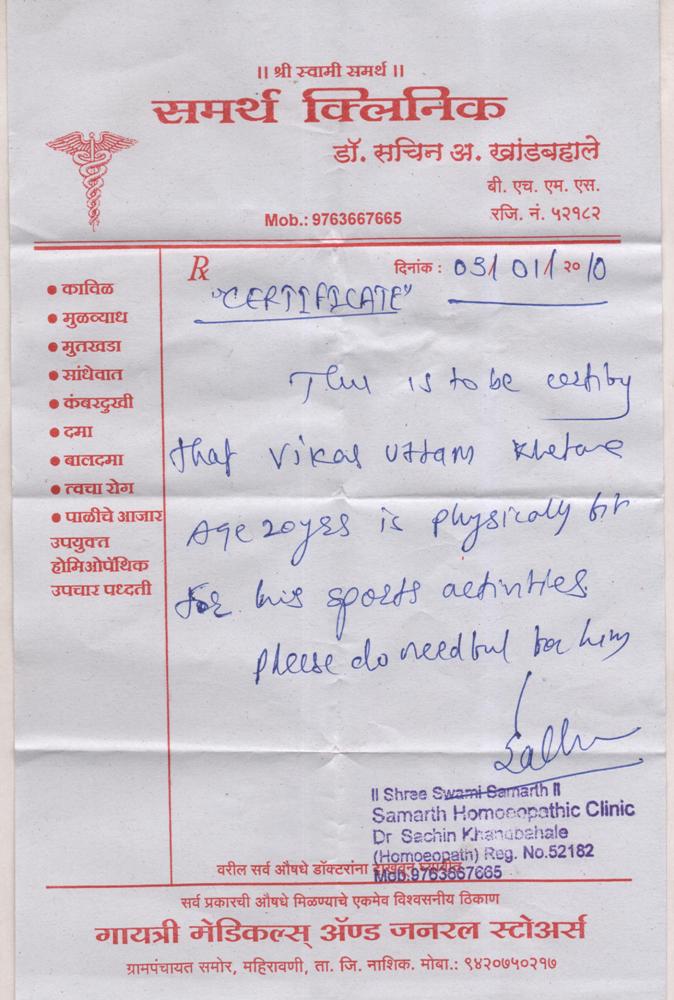 || श्री स्वामी समर्थ ||
समर्थ क्लिनिक
डॉ. सचिन अ. खांडबहाले
बी. एच. एम. एस.
Mob.: 9763667665
रजि. नं. ५२१८२
Rx
दिनांक : 03/01/२०10
"CERTIFICATE"
• काविळ
• मुळव्याध
• मुतखडा
• सांधेवात
• कंबरदुखी
• दमा
• बालदमा
• त्वचा रोग
• पाळीचे आजार
उपयुक्त
होमिओपॅथिक
उपचार पध्दती
This is to be certify
that Vikas Uttam
Age 20yrs is physically fit
for his sports activities.
Please do needful for him
|| Shree Swami Samarth ||
Samarth Homoeopathic Clinic
Dr Sachin Khandbahale
(Homoeopath) Reg. No.52182
Mob.9763667665
वरील सर्व औषधे डॉक्टरांना दाखवून घ्यावीत
सर्व प्रकारची औषधे मिळण्याचे एकमेव विश्वसनीय ठिकाण
गायत्री मेडिकल्स् ॲण्ड जनरल स्टोअर्स
ग्रामपंचायत समोर, महिरावणी, ता. जि. नाशिक. मोबा.: ९४२०७५०२१७